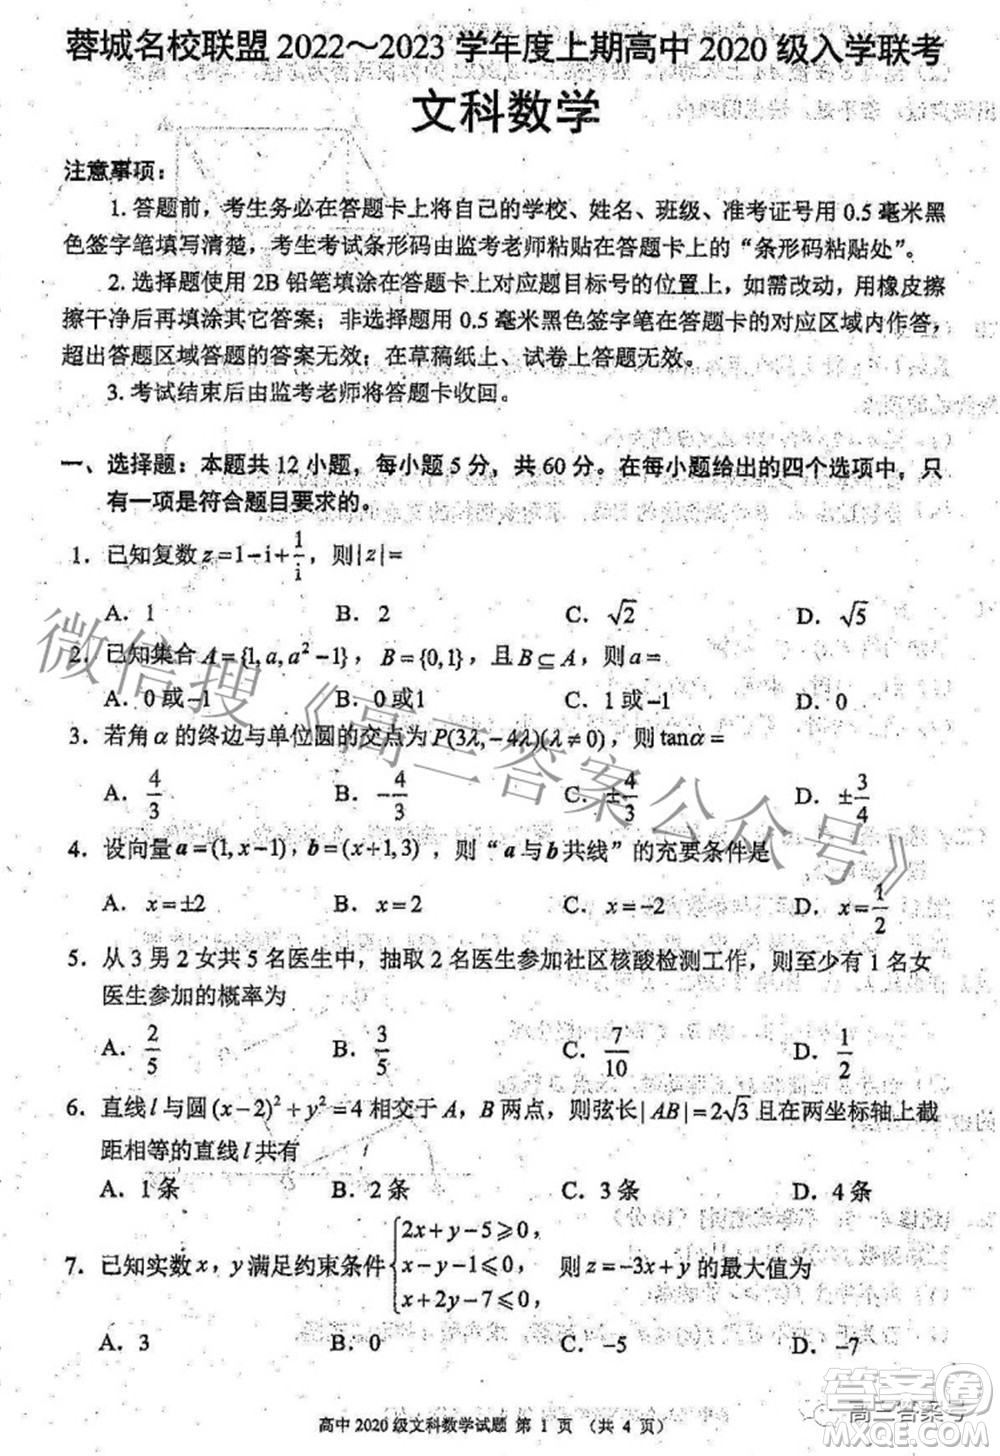 蓉城名校联盟 2022～2023 学年度上期高中 2020 级入学联考
文科数学
注意事项：
1. 答题前，考生务必在答题卡上将自己的学校、姓名、班级、准考证号用 0.5 毫米黑
色签字笔填写清楚，考生考试条形码由监考老师粘贴在答题卡上的“条形码粘贴处”。
2. 选择题使用 2B 铅笔填涂在答题卡上对应题目标号的位置上，如需改动，用橡皮擦
擦干净后再填涂其它答案；非选择题用 0.5 毫米黑色签字笔在答题卡的对应区域内作答，
超出答题区域答题的答案无效；在草稿纸上、试卷上答题无效。
3. 考试结束后由监考老师将答题卡收回。
一、选择题：本题共 12 小题，每小题 5 分，共 60 分。在每小题给出的四个选项中，只
有一项是符合题目要求的。
1．已知复数 z=1-i+1/i，则|z|=
A．1 B．2 C．√2 D．√5
2．已知集合 A={1,a,a²-1}，B={0,1}，且 B⊆A，则 a=
A．0 或 -1 B．0 或 1 C．1 或 -1 D．0
3．若角 α 的终边与单位圆的交点为 P(3λ,-4λ)(λ≠0)，则 tanα=
A．4/3 B．-4/3 C．±4/3 D．±3/4
4．设向量 a=(1,x-1)，b=(x+1,3)，则“a 与 b 共线”的充要条件是
A．x=±2 B．x=2 C．x=-2 D．x=1/2
5．从 3 男 2 女共 5 名医生中，抽取 2 名医生参加社区核酸检测工作，则至少有 1 名女
医生参加的概率为
A．2/5 B．3/5 C．7/10 D．1/2
6．直线 l 与圆 (x-2)²+y²=4 相交于 A，B 两点，则弦长|AB|=2√3 且在两坐标轴上截
距相等的直线 l 共有
A．1 条 B．2 条 C．3 条 D．4 条
7．已知实数 x，y 满足约束条件{2x+y-5⩾0, x-y-1⩽0, x+2y-7⩽0, 则 z=-3x+y 的最大值为
A．3 B．0 C．-5 D．-7
高中 2020 级文科数学试题 第 1 页 （共 4 页）
微信搜《高三答案公众号》
高三答案号
答案圈
MXQE.COM